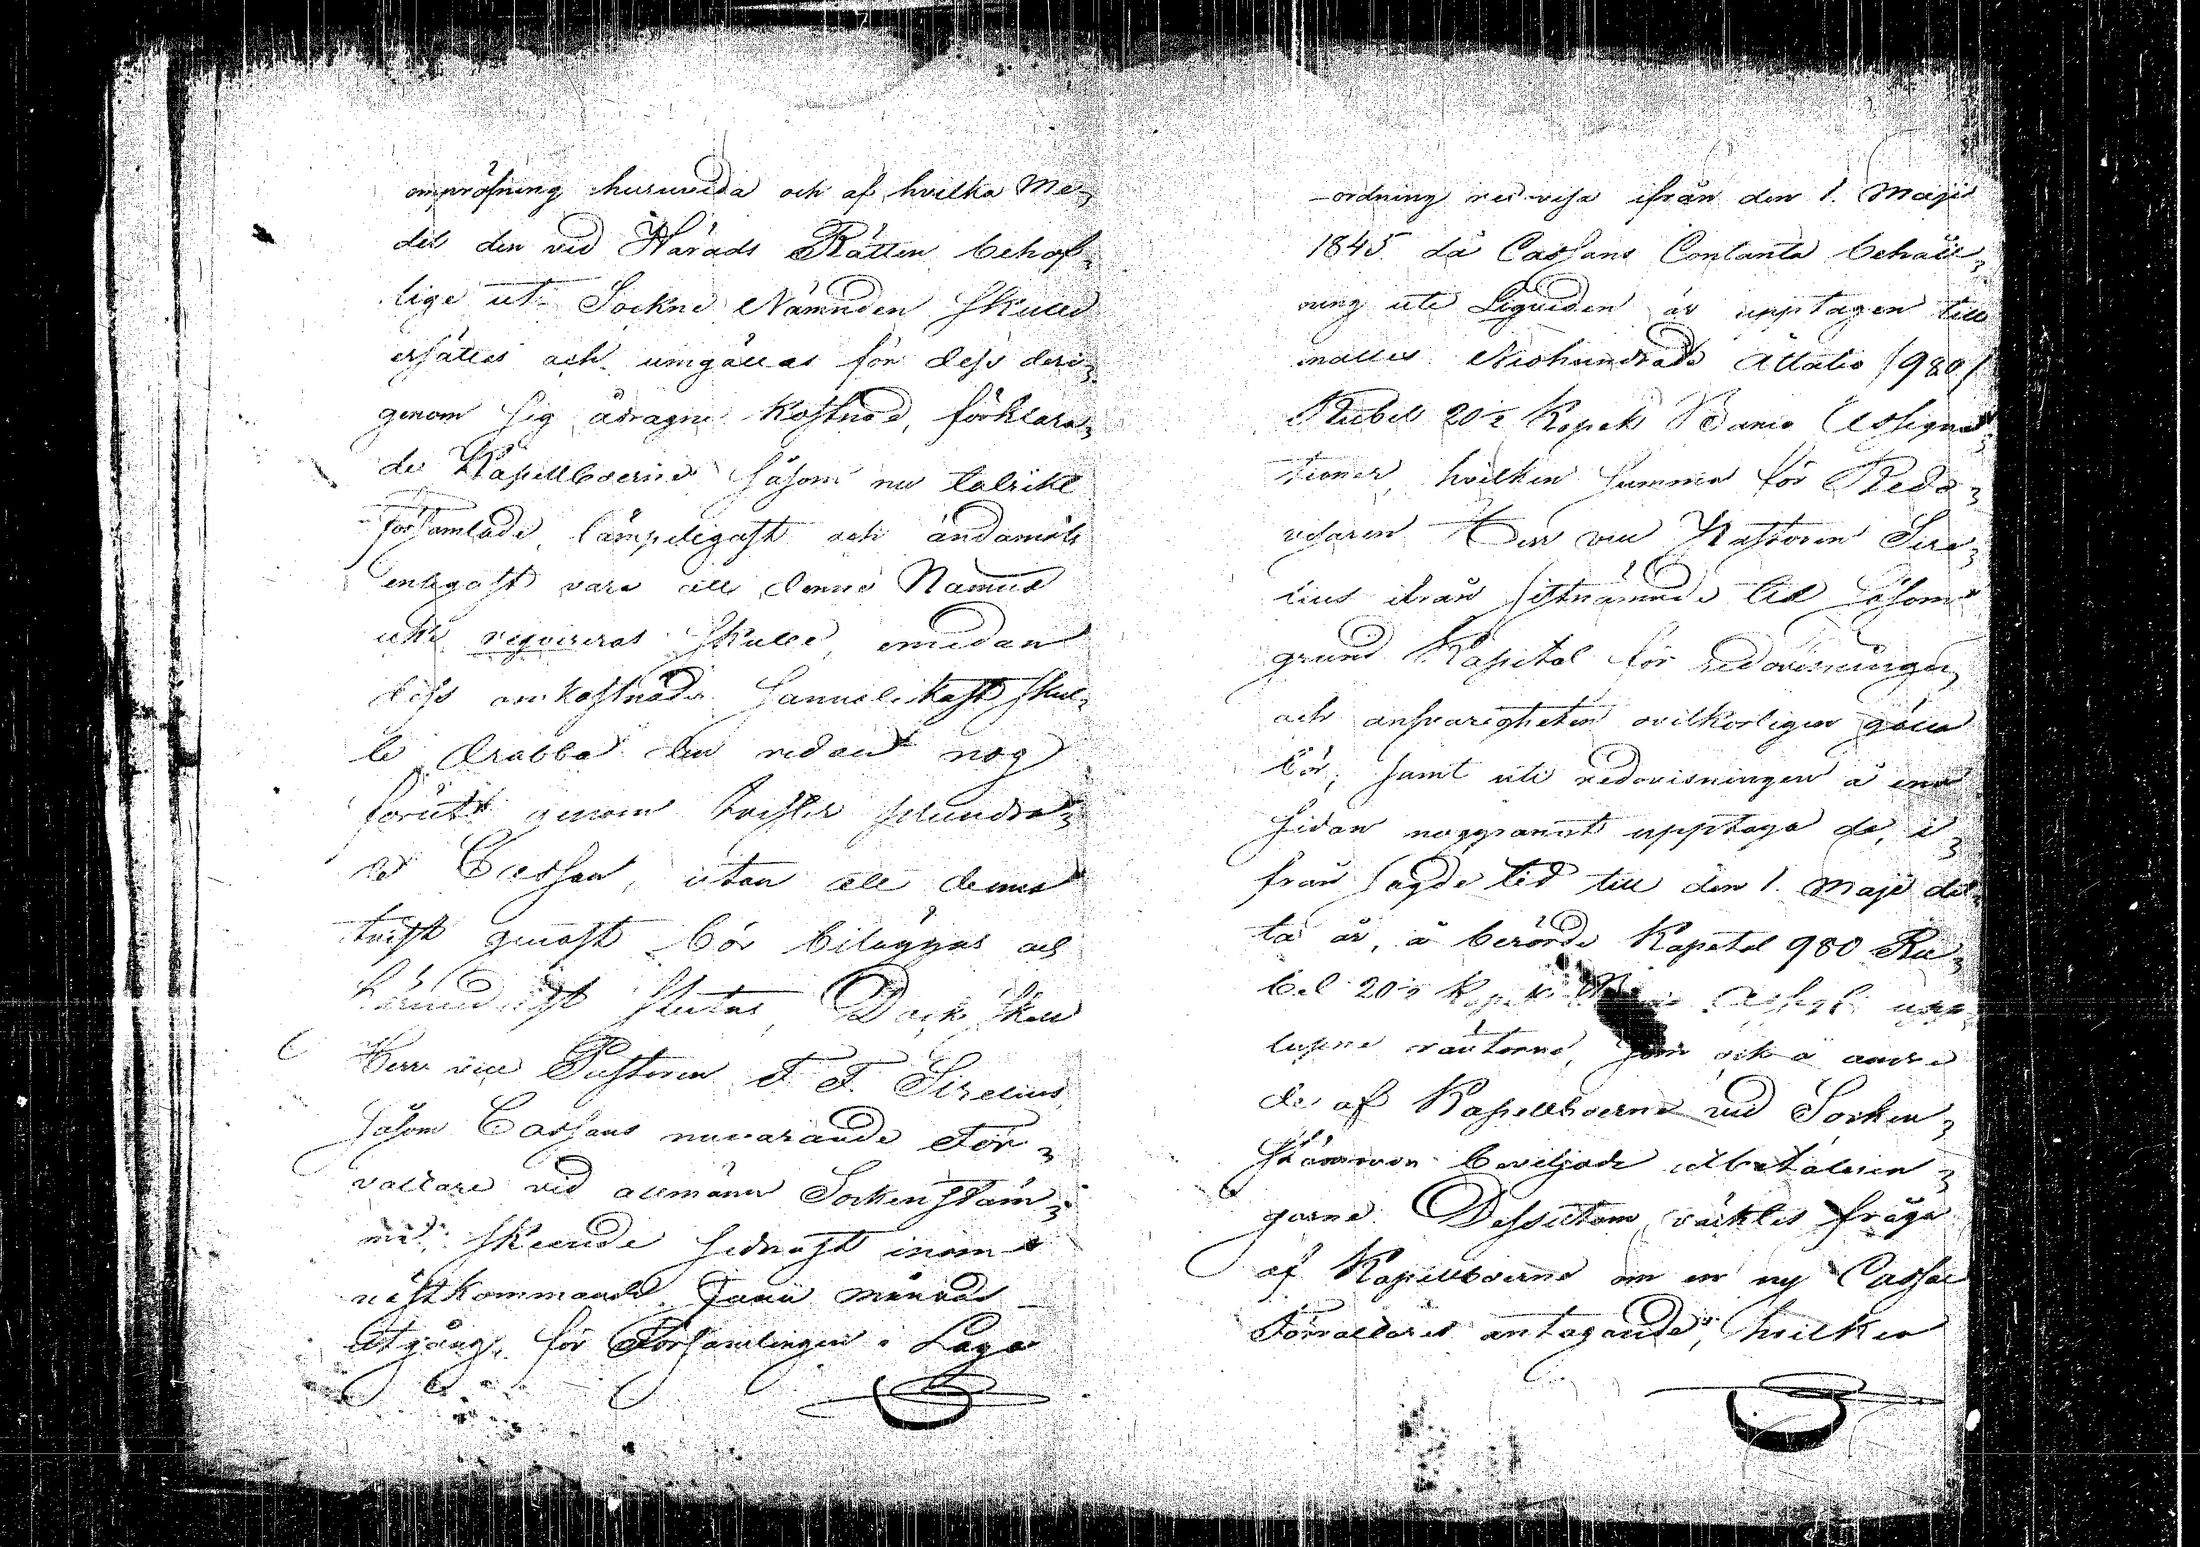 ompröfning huruvida och af hvilka Me-
del den vid Härads Rätten behof-
lige ut Sockne Nämnden skulle
ersättes och umgällas för dess deri-
genom sig ådragne kostnad, förklara-
de Kapellboerne såsom nu talrikt
församlade, lämpeligast och ändamåls
enligast vara att denne Nämnd
icke reqvireras skulle, emedan
dess omkostnader sannolikast skul-
le drabba den redan nog
förut genom tvister
Cassan, utan att denna
tvist genast bör biläggas och
slutas, Dock skall
Herr vice Pastoren F. F. Sirelius
såsom Cassans nuvarande För-
valtare vid allmänn Sockenstäm-
ma, skeende sednast inom
nästkommande Junii månads
utgång, för Församlingen i Laga
-ordning redovisa ifrån den 1. Maji
1845 då Cassans Contanta behåll-
ning uti Liqviden är upptagen till
Niohundrade Åttatio /980/
Rubel 20½ Kopek Banco Assigna-
tioner, hvilken summa för Redo-
visaren Herr vice Pastoren Sire-
lius ifrån sistnämnde tid såsom
grund Kapital för redovisningen
och ansvarigheten ovilkorligen gälla
bör, samt uti redovisningen å ena
sidan noggrannt upptaga de, i-
från sagde tid till den 1. Maji det-
ta år, å berörde Kapital 980 Ru-
bel 20½ Kopek upp-
lupne räntorne, som ock å andra
de af Kapellboerne vid Socken-
stämman beviljade utbetalnin-
garne. Dessutom väcktes fråga
af Kapellboerne om en ny Cassae
Förvaltares antagande, hvilken